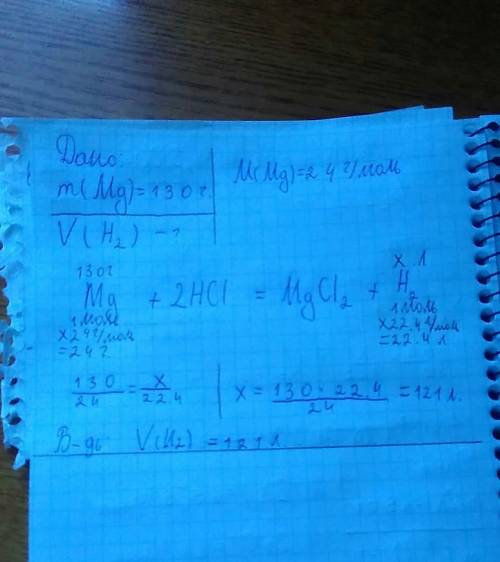 Дано:
m(Mg)=130г.
M(Mg)=24 г/моль
V(H2) - ?
130г
x л
Mg + 2HCl = MgCl2 + H2
1моль
1моль
x24г/моль
x22.4л/моль
=24г.
=22.4 л
130/24 = x/22.4
x = 130·22.4/24 = 121 л.
В-дь: V(H2) = 121 л